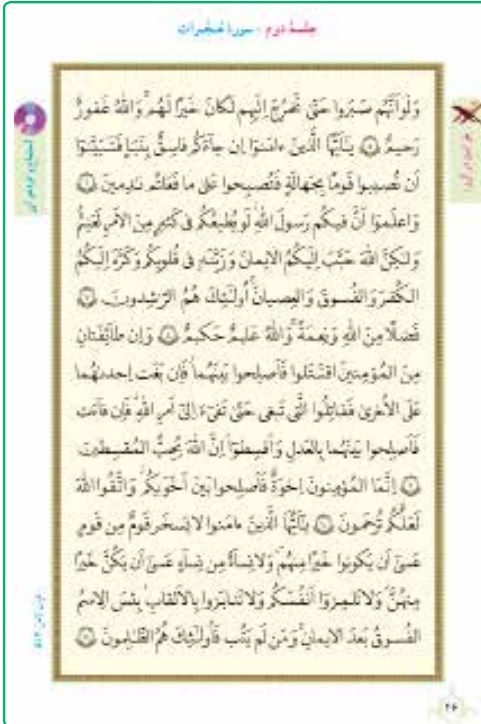 جلسهٔ دوم - سورهٔ حُجُرات
وَلَو اَنَّهُم صَبَروا حَتّیٰ تَخرُجَ اِلَیهِم لَکانَ خَیرًا لَهُم وَ اللّٰهُ غَفورٌ
رَحیمٌ ﴿۵﴾ یـٰاَیُّهَا الَّذینَ ءامَنوا اِن جاءَکُم فاسِقٌ بِنَبَاٍ فَتَبَیَّنوا
اَن تُصیبوا قَومًا بِجَهالَةٍ فَتُصبِحوا عَلیٰ ما فَعَلتُم نادِمینَ ﴿۶﴾
وَ اعلَموا اَنَّ فیکُم رَسولَ اللّٰهِ لَو یُطیعُکُم فی کَثیرٍ مِنَ الاَمرِ لَعَنِتُّم
وَلٰکِنَّ اللّٰهَ حَبَّبَ اِلَیکُمُ الایمانَ وَ زَیَّنَهُ فی قُلوبِکُم وَ کَرَّهَ اِلَیکُمُ
الکُفرَ وَ الفُسوقَ وَ العِصیانَ اُولٰئِکَ هُمُ الرّاشِدونَ ﴿۷﴾
فَضلًا مِنَ اللّٰهِ وَ نِعمَةً وَ اللّٰهُ عَلیمٌ حَکیمٌ ﴿۸﴾ وَ اِن طائِفَتانِ
مِنَ المُؤمِنینَ اقتَتَلوا فَاَصلِحوا بَینَهُما فَاِن بَغَت اِحداهُما
عَلَی الاُخریٰ فَقاتِلُوا الَّتی تَبغی حَتّیٰ تَفیءَ اِلیٰ اَمرِ اللّٰهِ فَاِن فاءَت
فَاَصلِحوا بَینَهُما بِالعَدلِ وَ اَقسِطوا اِنَّ اللّٰهَ یُحِبُّ المُقسِطینَ
﴿۹﴾ اِنَّمَا المُؤمِنونَ اِخوَةٌ فَاَصلِحوا بَینَ اَخَوَیکُم وَ اتَّقُوا اللّٰهَ
لَعَلَّکُم تُرحَمونَ ﴿۱۰﴾ یـٰاَیُّهَا الَّذینَ ءامَنوا لا یَسخَر قَومٌ مِن قَومٍ
عَسیٰ اَن یَکونوا خَیرًا مِنهُم وَ لا نِساءٌ مِن نِساءٍ عَسیٰ اَن یَکُنَّ خَیرًا
مِنهُنَّ وَ لا تَلمِزوا اَنفُسَکُم وَ لا تَنابَزوا بِالاَلقابِ بِئسَ الاِسمُ
الفُسوقُ بَعدَ الایمانِ وَ مَن لَم یَتُب فَاُولٰئِکَ هُمُ الظّالِمونَ ﴿۱۱﴾
۲۶